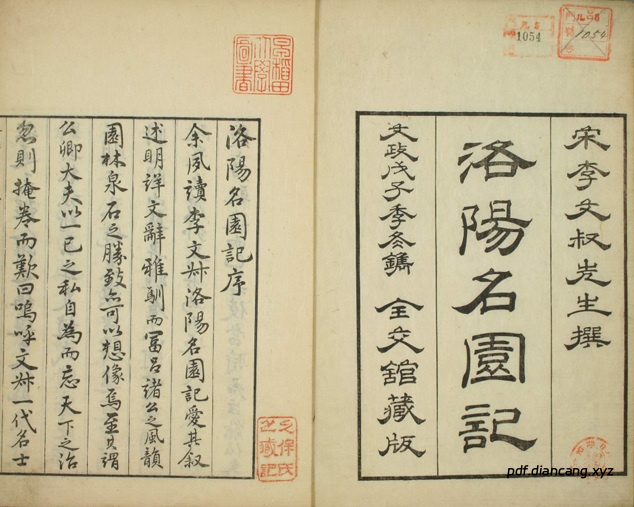 宋李文叔先生撰
洛陽名園記
文政戊子季冬鐫 全交舘藏版
1054
1054
早稲田大學圖書
洛陽名園記序
余夙讀李文叔洛陽名園記愛其叙
述明詳文辭雅馴而冨呂諸公之風韻
園林泉石之勝致亦可以想像焉至其謂
公卿大夫以一已之私自為而忘天下之治
忽則掩卷而歎曰嗚呼文叔一代名士
pdf.diancang.xyz